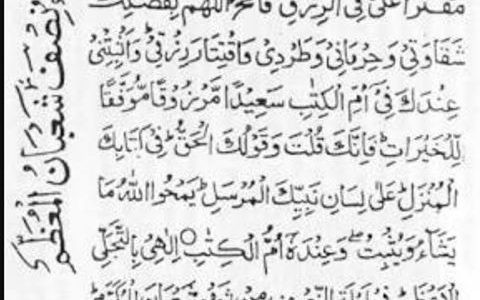 مُقَتَّرًا عَلَيَّ فِي الرِّزْقِ فَامْحُ اللّٰهُمَّ بِفَضْلِكَ
شَقَاوَتِيْ وَحِرْمَانِيْ وَطَرْدِيْ وَاقْتِتَارَ رِزْقِيْ وَاثْبِتْنِيْ
عِنْدَكَ فِيْ اُمِّ الْكِتٰبِ سَعِيْدًا مَّرْزُوْقًا مُّوَفَّقًا
لِّلْخَيْرَاتِ فَاِنَّكَ قُلْتَ وَقَوْلُكَ الْحَقُّ فِيْ كِتَابِكَ
الْمُنَزَّلِ عَلٰى لِسَانِ نَبِيِّكَ الْمُرْسَلِ يَمْحُوا اللهُ مَا
يَشَآءُ وَيُثْبِتُ وَعِنْدَهٗ اُمُّ الْكِتٰبِ ○ اِلٰهِيْ بِالتَّجَلِّيْ
نصف شعبان المعظم